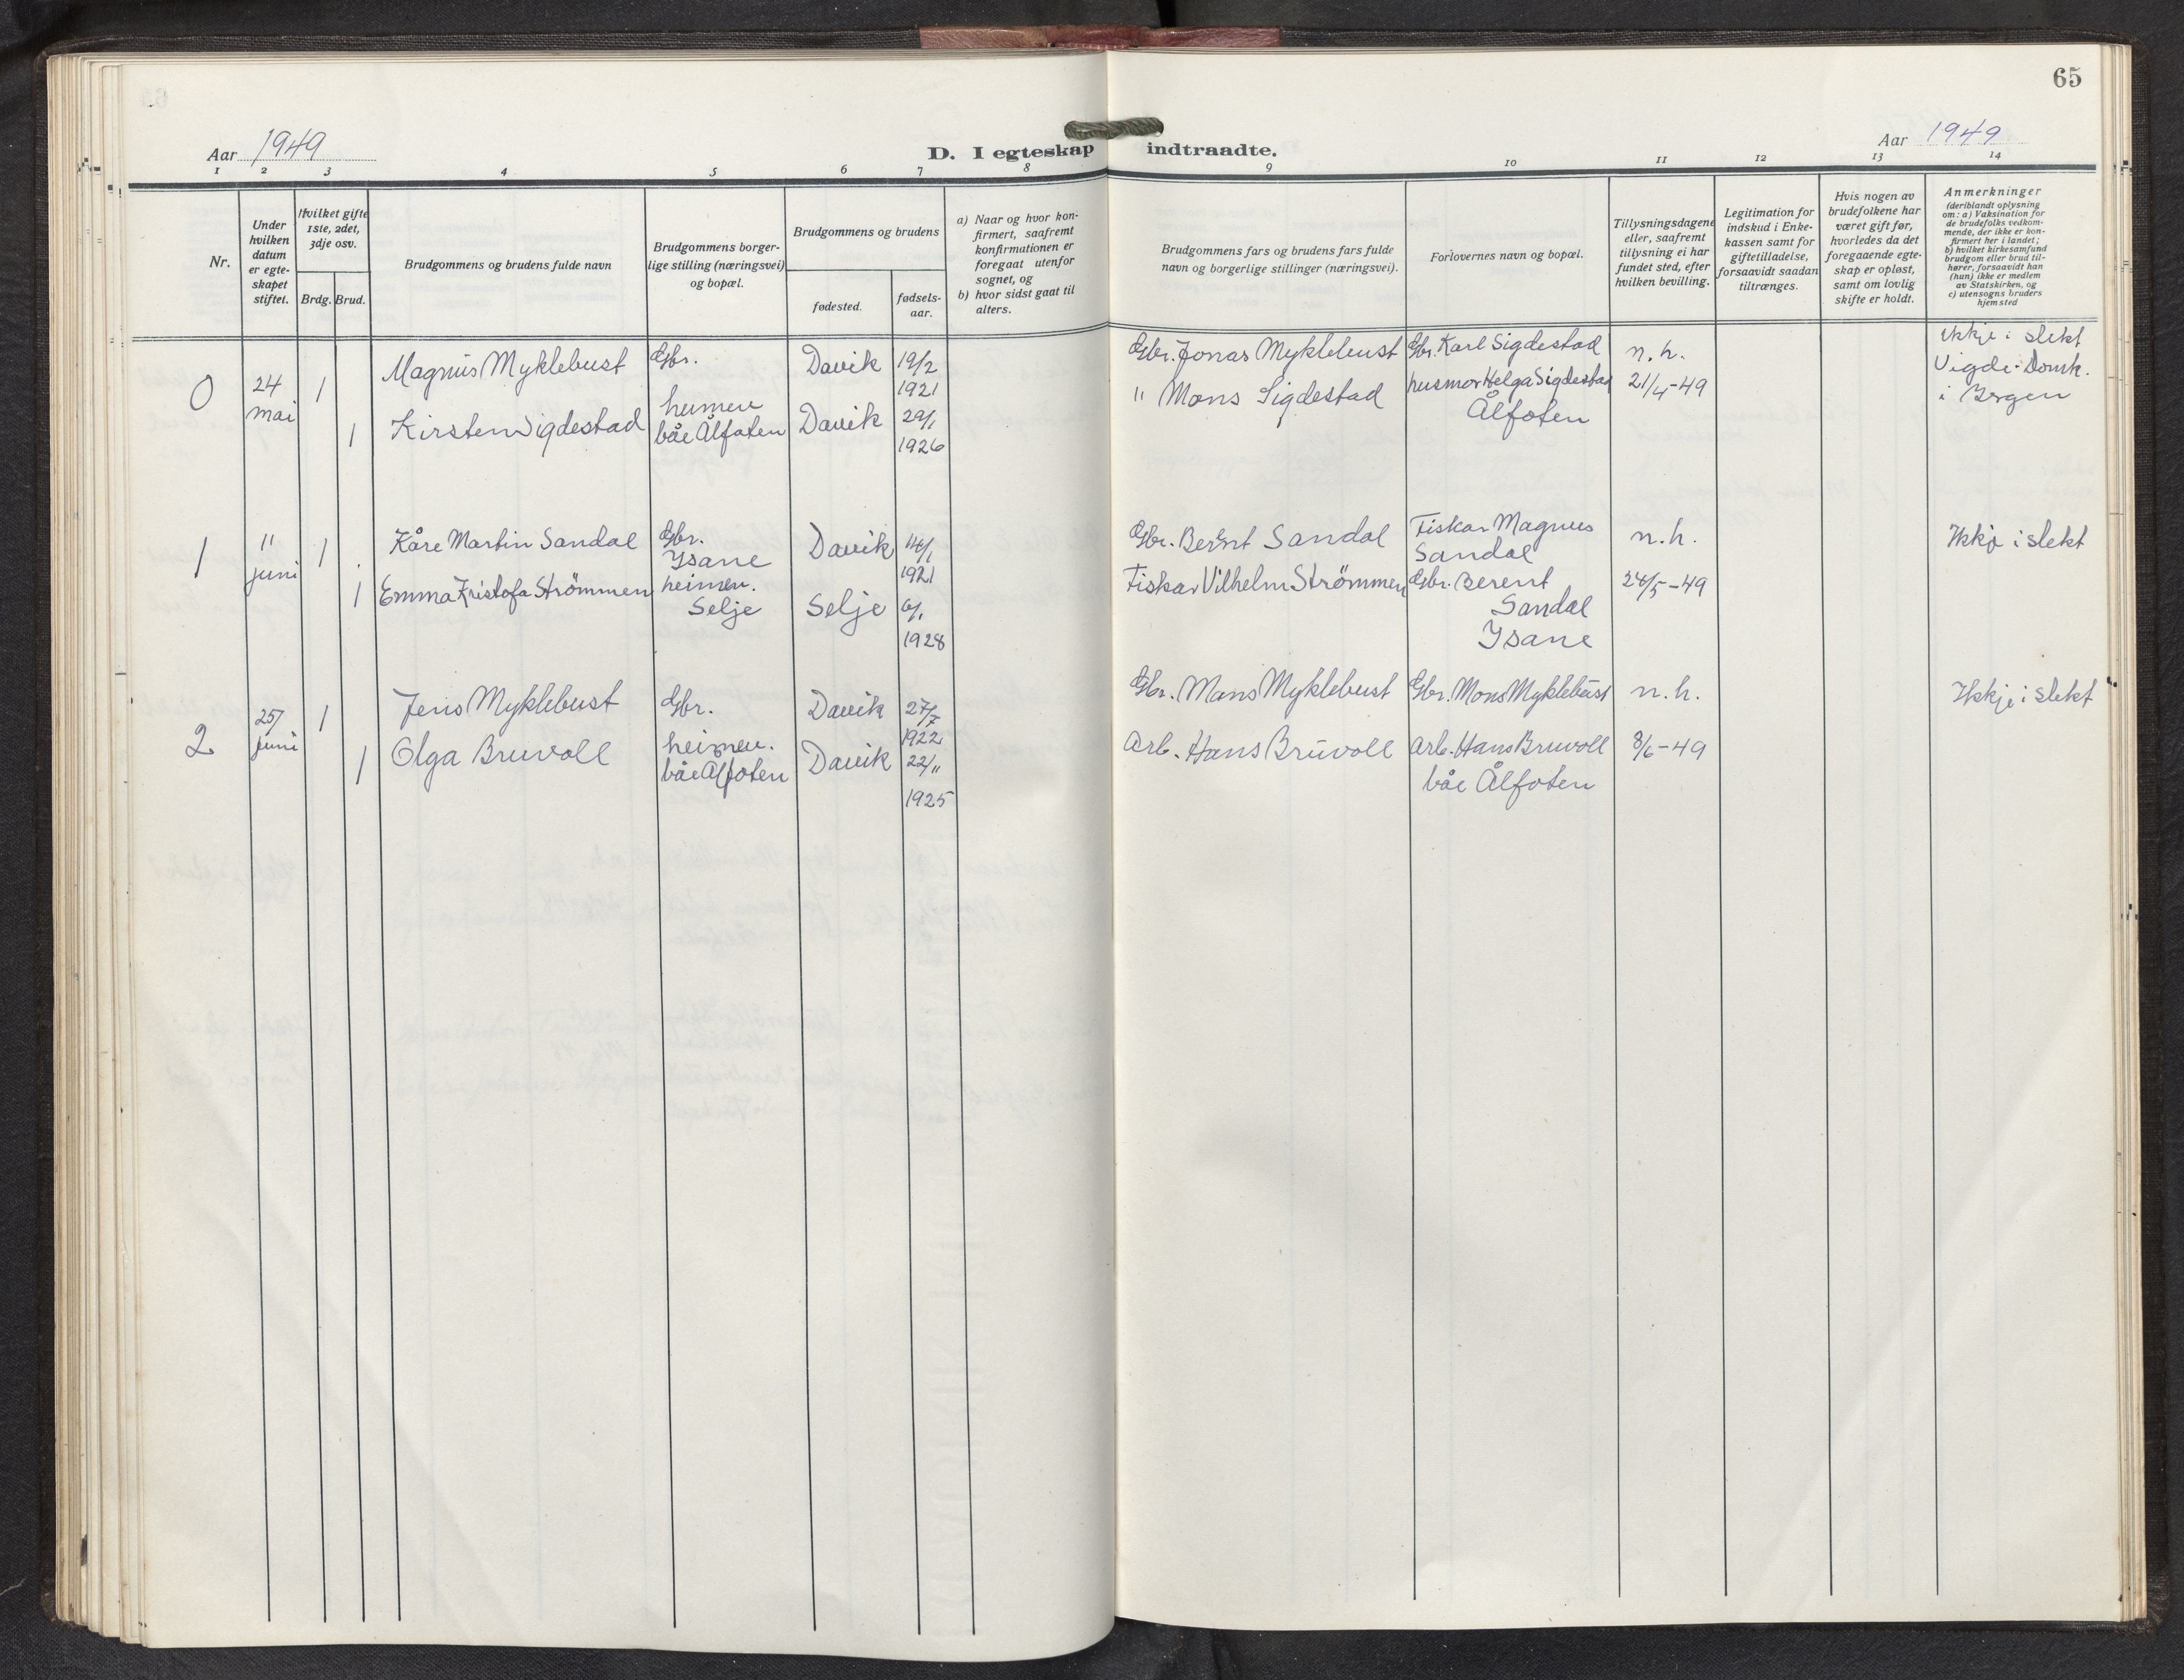 65
Aar 1949
D. I egteskap indtraadte.
Aar 1949
1 2 3 4 5 6 7 8 9 10 11 12 13 14
Nr.
Under
hvilken
datum
er egte-
skapet
stiftet.
Hvilket gifte
1ste, 2det,
3dje osv.
Brdg. Brud.
Brudgommens og brudens fulde navn
Brudgommens borger-
lige stilling (næringsvei)
og bopæl.
Brudgommens og brudens
fødested.
fødsels-
aar.
a) Naar og hvor kon-
firmert, saafremt
konfirmationen er
foregaat utenfor
sognet, og
b) hvor sidst gaat til
alters.
Brudgommens fars og brudens fars fulde
navn og borgerlige stillinger (næringsvei).
Forlovernes navn og bopæl.
Tillysningsdagene
eller, saafremt
tillysning ei har
fundet sted, efter
hvilken bevilling.
Legitimation for
indskud i Enke-
kassen samt for
giftetilladelse,
forsaavidt saadan
tiltrænges.
Hvis nogen av
brudefolkene har
været gift før,
hvorledes da det
foregaaende egte-
skap er opløst,
samt om lovlig
skifte er holdt.
Anmerkninger
(deriblandt oplysning
om: a) Vaksination for
de brudefolks vedkom-
mende, der ikke er kon-
firmert her i landet;
b) hvilket kirkesamfund
brudgom eller brud til-
hører, forsaavidt han
(hun) ikke er medlem
av Statskirken, og
c) utensogns bruders
hjemsted
0
24
mai
1
1
Magnus Myklebust
Kirsten Sigdestad
Gbr.
heimen
båe Ålfoten
Davik
Davik
19/2
1921
29/1
1926
Gbr. Jonas Myklebust
" Mons Sigdestad
Gbr. Karl Sigdestad
husmor Helga Sigdestad
Ålfoten
n.h.
21/4-49
Ikkje i slekt
Vigde i Domk.
i Bergen
1
11
juni
1
1
Kåre Martin Sandal
Emma Kristofa Strömmen
Gbr.
Ysane
heimen.
Selje
Davik
Selje
14/1
1921
6/1
1928
Gbr. Bernt Sandal
Fiskar Vilhelm Strömmen
Fiskar Magnus
Sandal
Gbr. Berent
Sandal
Ysane
n.h.
24/5-49
Ikkje i slekt
2
25
juni
1
1
Jens Myklebust
Olga Bruvoll
Gbr.
heimen.
båe Ålfoten
Davik
Davik
27/7
1922
22/11
1925
Gbr. Mons Myklebust
Arb. Hans Bruvoll
Gbr. Mons Myklebust
Arb. Hans Bruvoll
båe Ålfoten
n.h.
8/6-49
Ikkje i slekt